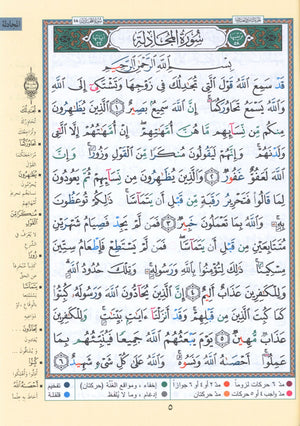 سُورَةُ المُجَادلَة
بِسْمِ اللَّهِ الرَّحْمَٰنِ الرَّحِيمِ
قَدْ سَمِعَ اللَّهُ قَوْلَ الَّتِي تُجَادِلُكَ فِي زَوْجِهَا وَتَشْتَكِي إِلَى اللَّهِ
وَاللَّهُ يَسْمَعُ تَحَاوُرَكُمَا إِنَّ اللَّهَ سَمِيعٌ بَصِيرٌ ١ الَّذِينَ يُظَاهِرُونَ
مِنكُم مِّن نِّسَائِهِم مَّا هُنَّ أُمَّهَاتِهِمْ إِنْ أُمَّهَاتُهُمْ إِلَّا الَّائِي
وَلَدْنَهُمْ وَإِنَّهُمْ لَيَقُولُونَ مُنكَرًا مِّنَ الْقَوْلِ وَزُورًا وَإِنَّ
اللَّهَ لَعَفُوٌّ غَفُورٌ ٢ وَالَّذِينَ يُظَاهِرُونَ مِن نِّسَائِهِمْ ثُمَّ يَعُودُونَ
لِمَا قَالُوا فَتَحْرِيرُ رَقَبَةٍ مِّن قَبْلِ أَن يَتَمَاسَّا ذَٰلِكُمْ تُوعَظُونَ
بِهِ وَاللَّهُ بِمَا تَعْمَلُونَ خَبِيرٌ ٣ فَمَن لَّمْ يَجِدْ فَصِيَامُ شَهْرَيْنِ
مُتَتَابِعَيْنِ مِن قَبْلِ أَن يَتَمَاسَّا فَمَن لَّمْ يَسْتَطِعْ فَإِطْعَامُ سِتِّينَ
مِسْكِينًا ذَٰلِكَ لِتُؤْمِنُوا بِاللَّهِ وَرَسُولِهِ وَتِلْكَ حُدُودُ اللَّهِ
وَلِلْكَافِرِينَ عَذَابٌ أَلِيمٌ ٤ إِنَّ الَّذِينَ يُحَادُّونَ اللَّهَ وَرَسُولَهُ كُبِتُوا
كَمَا كُبِتَ الَّذِينَ مِن قَبْلِهِمْ وَقَدْ أَنزَلْنَا آيَاتٍ بَيِّنَاتٍ وَلِلْكَافِرِينَ
عَذَابٌ مُّهِينٌ ٥ يَوْمَ يَبْعَثُهُمُ اللَّهُ جَمِيعًا فَيُنَبِّئُهُم بِمَا
عَمِلُوا أَحْصَاهُ اللَّهُ وَنَسُوهُ وَاللَّهُ عَلَىٰ كُلِّ شَيْءٍ شَهِيدٌ ٦
المجادلة
مدّ ٦ حركات لزوماً
مدّ ٢ أو ٤ أو ٦ جوازاً
إخفاء، ومواقع الغُنَّة (حركتان)
تفخيم
مدّ واجب ٤ أو ٥ حركات
مدّ حركتان
إدغام، وما لا يُلفَظ
قلقلة
٥